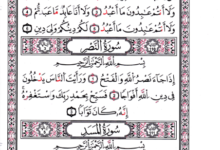 وَلَا أَنتُمْ عَابِدُونَ مَا أَعْبُدُ ۝ وَلَا أَنَا عَابِدٌ مَّا عَبَدتُّمْ ۝
وَلَا أَنتُمْ عَابِدُونَ مَا أَعْبُدُ ۝ لَكُمْ دِينُكُمْ وَلِيَ دِينِ ۝
سُورَةُ النَّصْرِ
بِسْمِ اللَّهِ الرَّحْمَٰنِ الرَّحِيمِ
إِذَا جَاءَ نَصْرُ اللَّهِ وَالْفَتْحُ ۝ وَرَأَيْتَ النَّاسَ يَدْخُلُونَ
فِي دِينِ اللَّهِ أَفْوَاجًا ۝ فَسَبِّحْ بِحَمْدِ رَبِّكَ وَاسْتَغْفِرْهُ
إِنَّهُ كَانَ تَوَّابًا ۝
سُورَةُ الْمَسَدِ
بِسْمِ اللَّهِ الرَّحْمَٰنِ الرَّحِيمِ